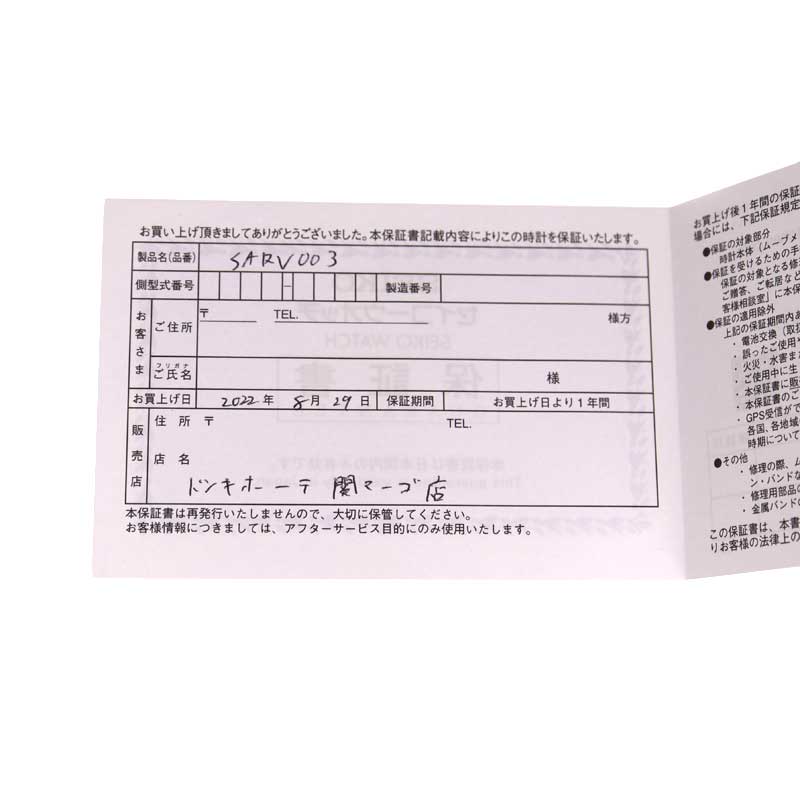 お買い上げ頂きましてありがとうございました。本保証書記載内容によりこの時計を保証いたします。
製品名(品番) SARV003
側型式番号 － 製造番号
お客さま ご住所 〒 TEL. 様方
フリガナ
ご氏名 様
お買上げ日 2022年 8月 29日 保証期間 お買上げ日より1年間
販売店 住所 〒 TEL.
店名
ドンキホーテ 関マーゴ店
本保証書は再発行いたしませんので、大切に保管してください。
お客様情報につきましては、アフターサービス目的にのみ使用いたします。
お買上げ後1年間の保証
場合には、下記保証規定
●保証の対象部分
時計本体（ムーブメ
●保証を受けるための手
保証の対象となる修
ご贈答、ご転居など
客様相談室」に本保
●保証の適用除外
上記の保証期間内あ
・電池交換（取扱
・誤ったご使用や
・火災・水害また
・ご使用中に生じ
・本保証書に販
・本保証書のご
・GPS受信がで
各国、各地域
時期について
●その他
・修理の際、ム
ン・バンドな
・修理用部品の
・金属バンドの
この保証書は、本書
りお客様の法律上の
保証書
SEIKO WATCH
セイコーウオッチ
本保証書は日本国内のみ有効です。